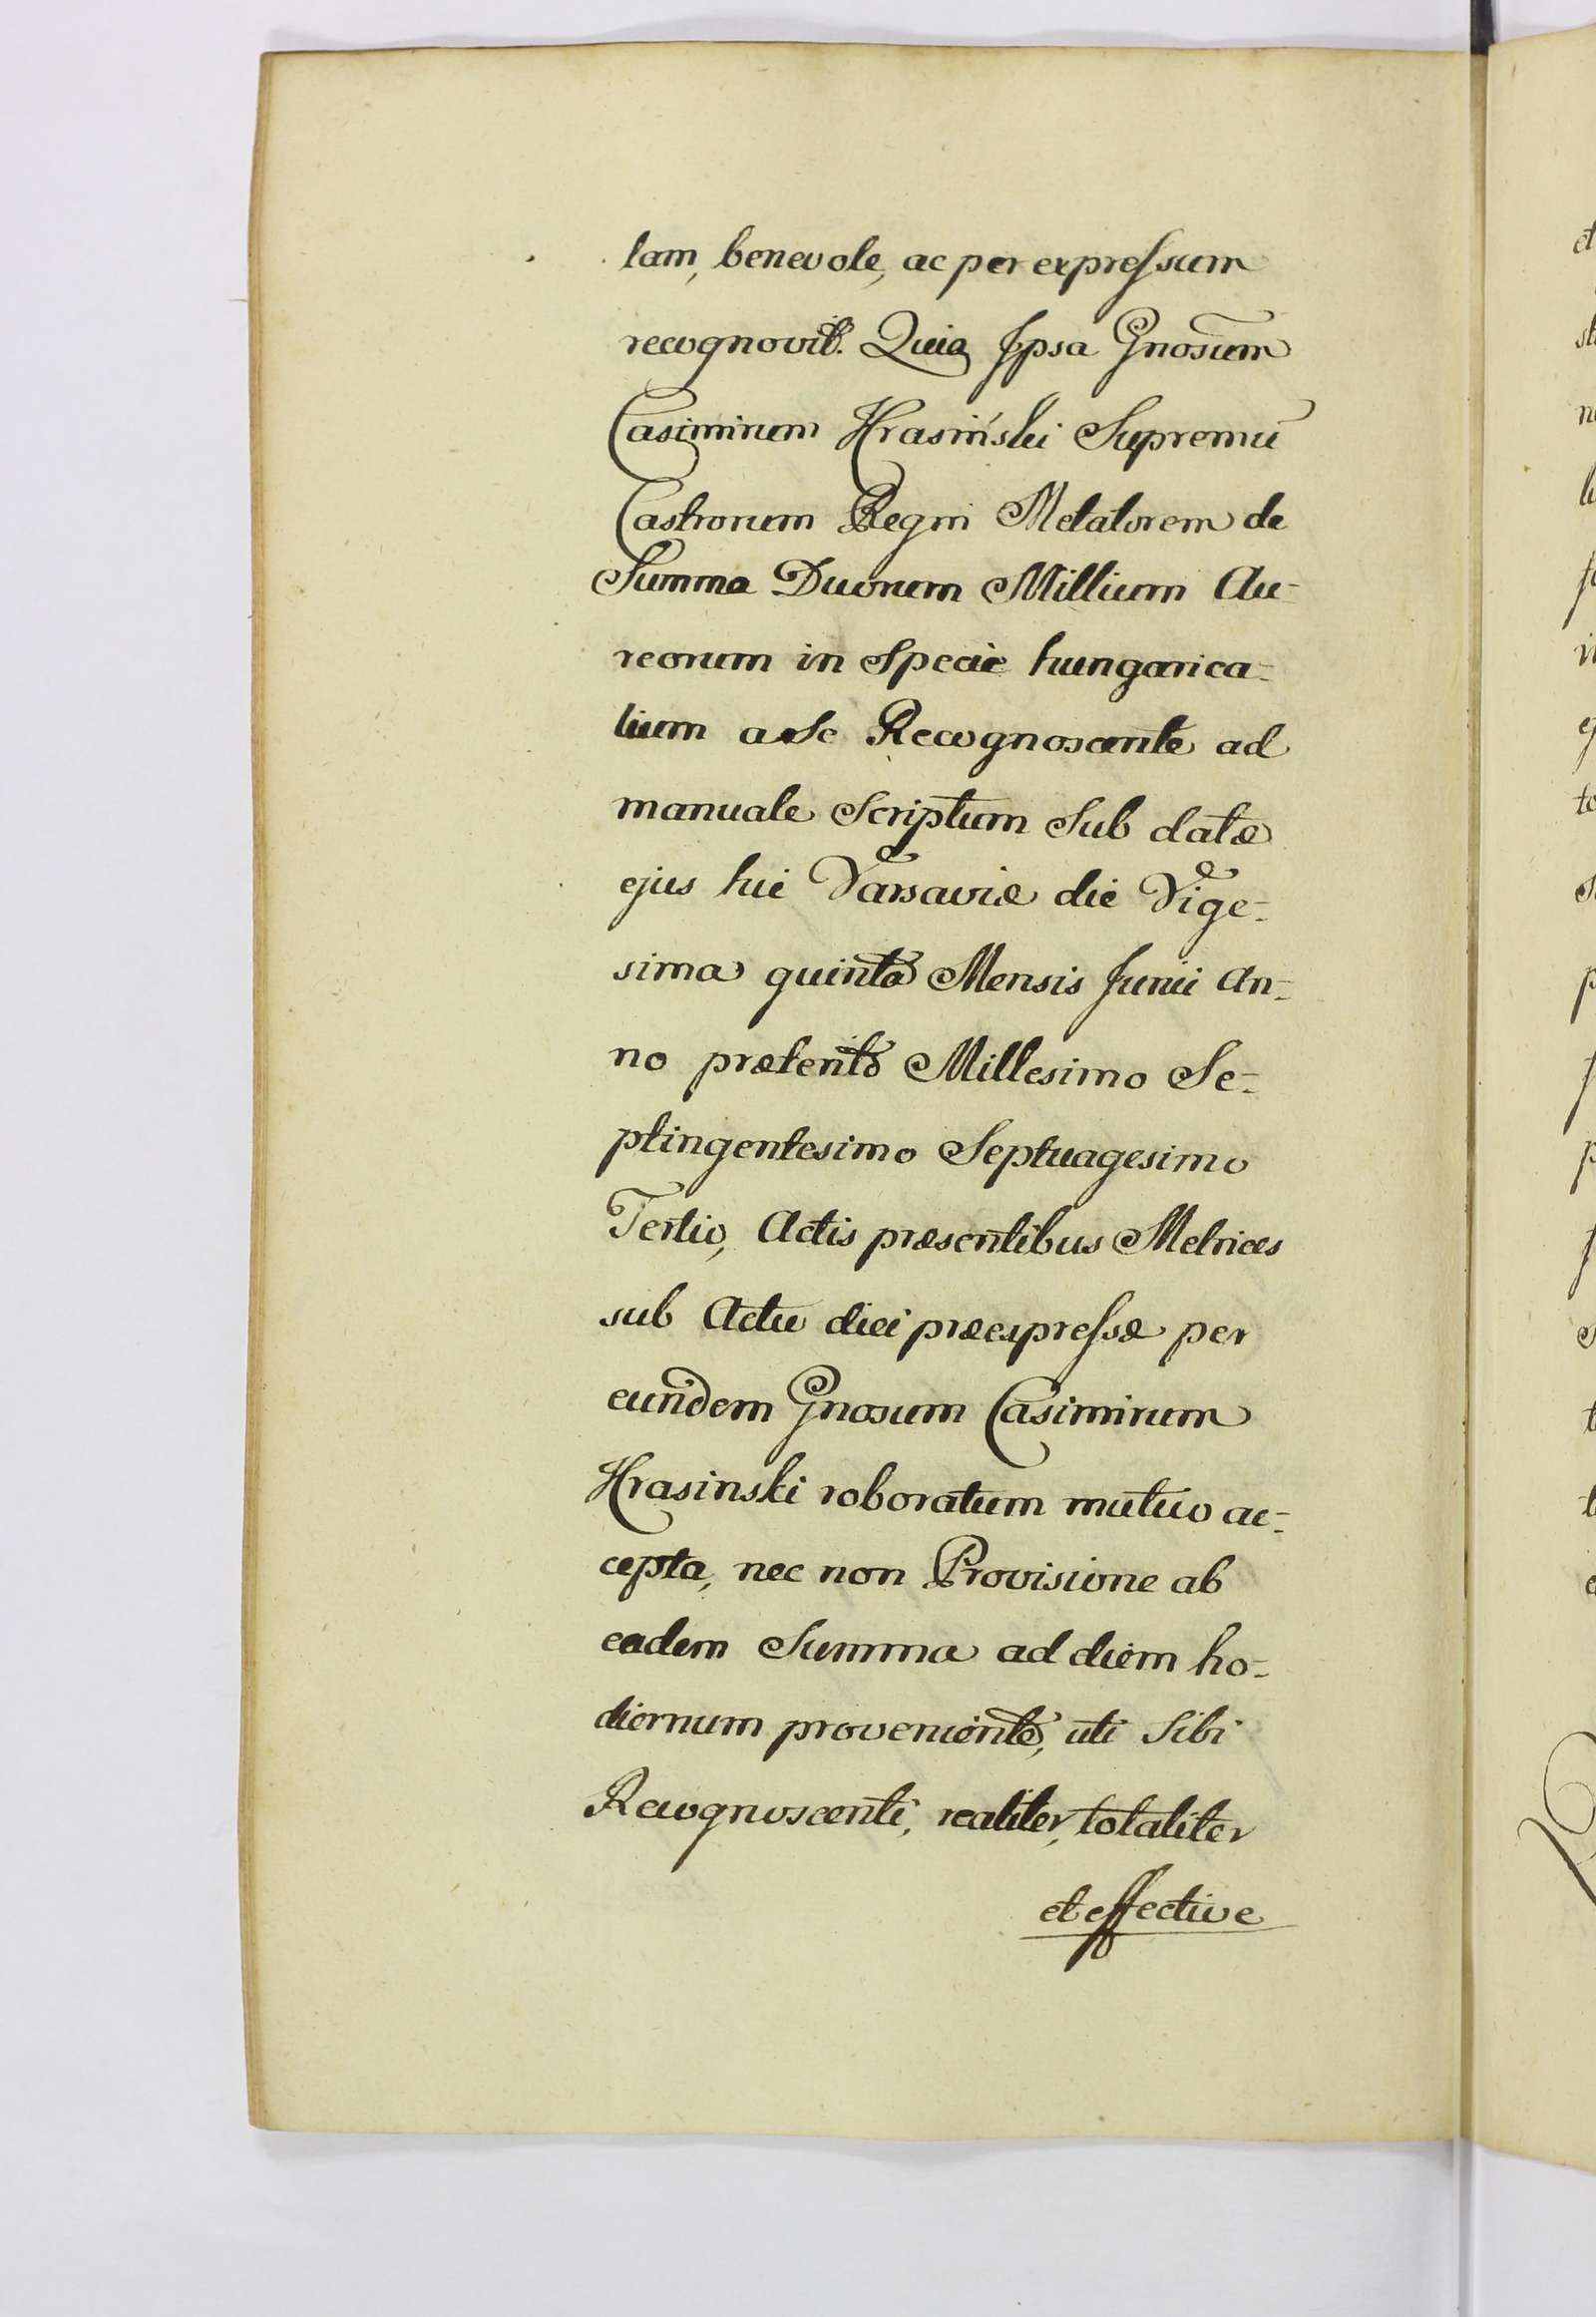 lam, benevole, ac per expressum
recognovit. Quia Ipsa Gnosum
Casimirum Krasiński Supremū
Castrorum Regni Metatorem de
Summa Duorum Millium Au-
reorum in Specie hungarica-
lium a se Recognoscente ad
manuale Scriptum sub datæ
ejus hic Varsaviæ die Vige-
sima quinta Mensis Junii An-
no præterito Millesimo Se-
ptingentesimo Septuagesimo
Tertio, Actis præsentibus Metrices
sub Actu diei præexpressæ per
eundem Gnosum Casimirum
Krasinski roboratum mutuo ac-
cepta, nec non Provisione ab
eadem Summa ad diem ho-
diernum proveniente, uti sibi
Recognoscenti, realiter, totaliter
et effective